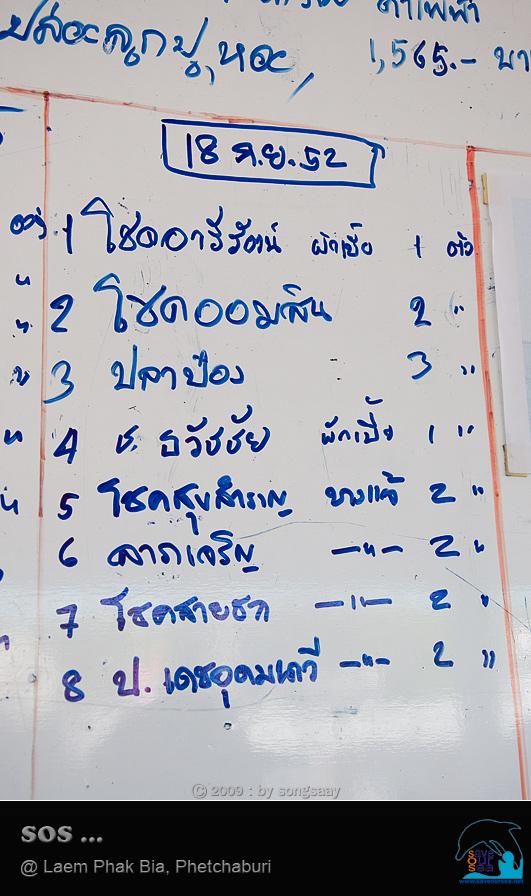 1,565.-
18 ก.ย. 52
1 โชคอารีรัตน์ ผักเบี้ย 1 ตัว
2 โชคออมสิน 2 "
3 ปลาป๋อง 3 "
4 ช. ธวัชชัย ผักเบี้ย 1 "
5 โชคสุขสำราญ บางแก้ว 2 "
6 ลาภเจริญ —"— 2 "
7 โชคสายชล —"— 2 "
8 ป. เดชอุดมนาวี —"— 2 "
© 2009 : by songsaay
sos ...
@ Laem Phak Bia, Phetchaburi
save
OUR
sea
www.saveoursea.net